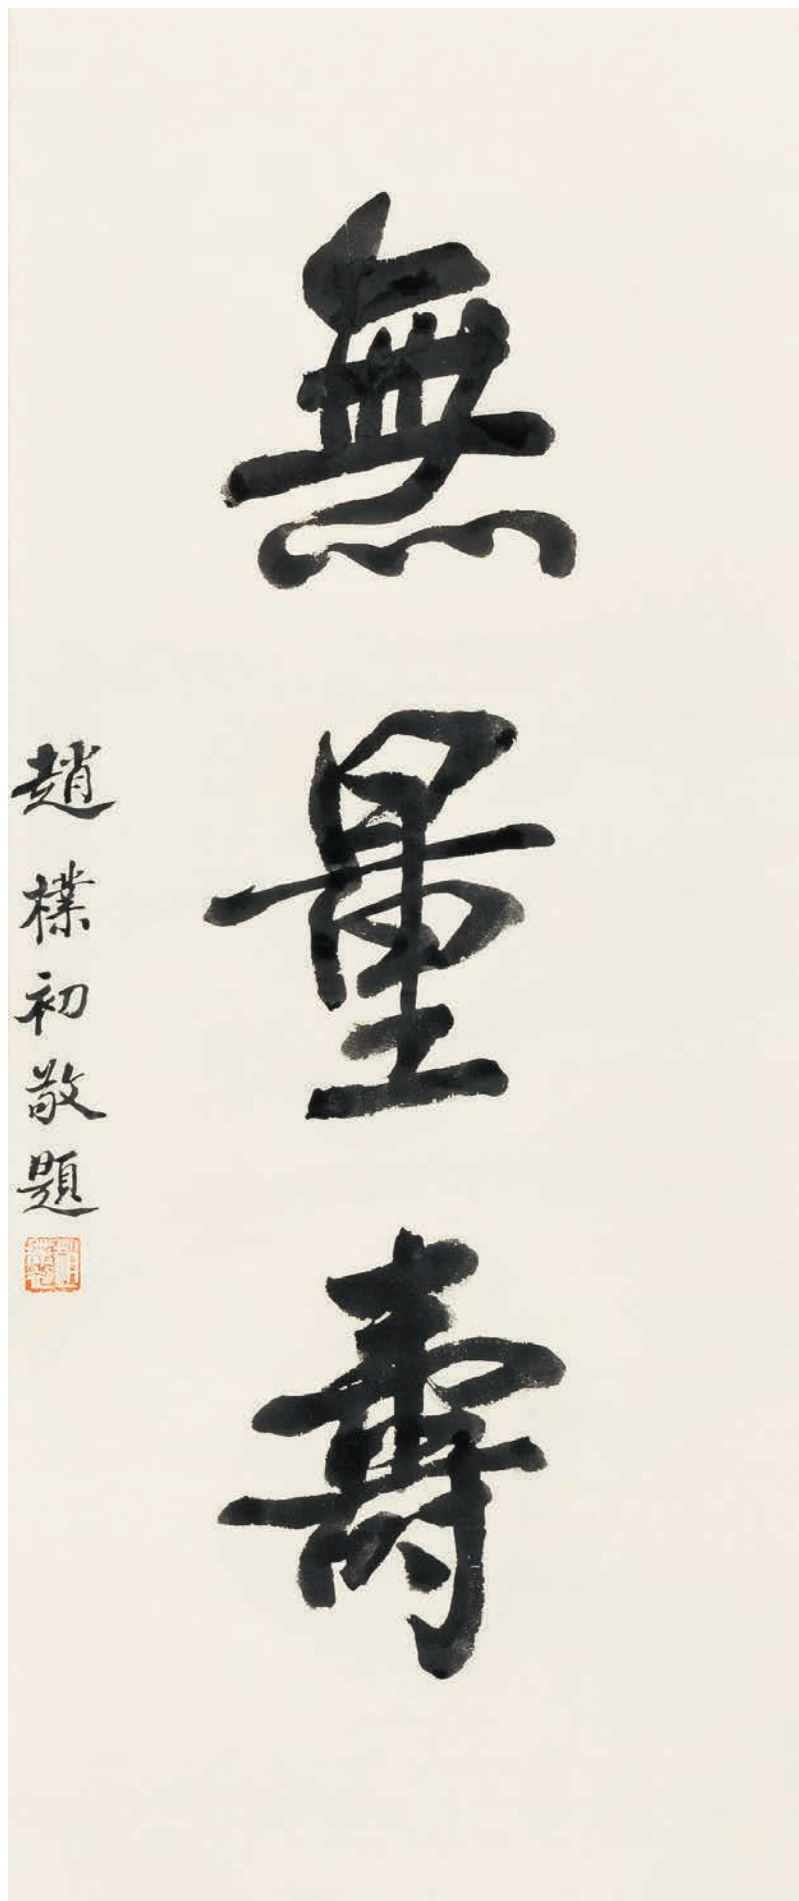 無量壽
趙樸初敬題